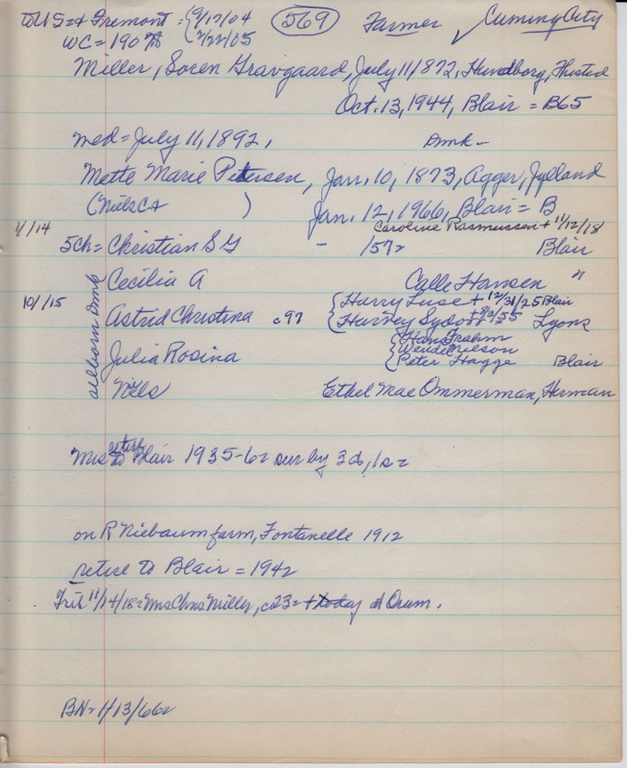 to US = & Fremont = {9/17/04 (569) Farmer ✓ Cuming City
WC = 190 2/22/05
Miller, Soren Gravgaard, July 11/872, Hundborg, Thisted
Oct. 13, 1944, Blair = B65
med = July 11, 1892, Dmk -
Mette Marie Petersen, Jan. 10, 1873, Agger, Jylland
(Niels Ca ) Jan. 12, 1966, Blair = B
Caroline Rasmussen + 11/12/18
1/14
5ch = Christian S G - /572 Blair
Cecilia A Calle Hansen "
10/15
{Harry Luse + 12/31/25 Blair
Astrid Christina c97 {Harvey Sydow + 9/3/55 Lyons
{Hans Frahm
Wendel Nelson
Julia Rosina Peter Hagge Blair
all born Dmk
Nels Ethel Mae Ommerman, Herman
Mrs to Blair 1935-62 sur by 3d, 1s =
on R Niebaum farm, Fontanelle 1912
retire to Blair = 1942
Trib 11/14/18 = Mrs Chris Miller, c23 = + today at Orum.
BN = 1/13/66